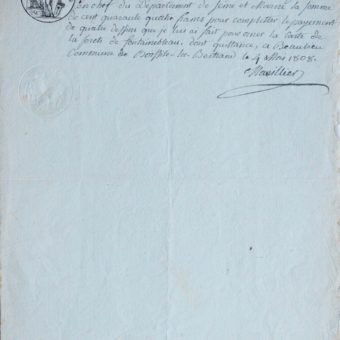 en chef du Département de Seine et Marne la somme
de cent quarante quatre francs pour completter le payement
de quatre dessins que je lui ai fait pour orner la Carte de
la forêt de fontainebleau dont quittance, a Beaulieu
Commune de Boissise-la-Bertrand le 4 1808.